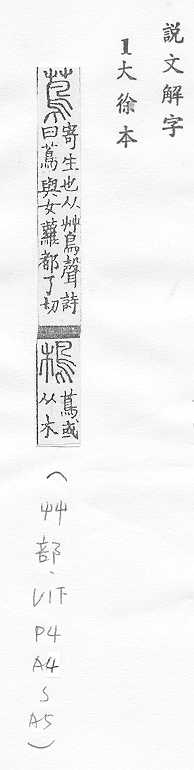 説文解字
1大徐本
蔦
寄生也从艸鳥聲詩
曰蔦與女蘿都了切
樢
蔦或
从木
(艸部、V1下P4A4~A5)